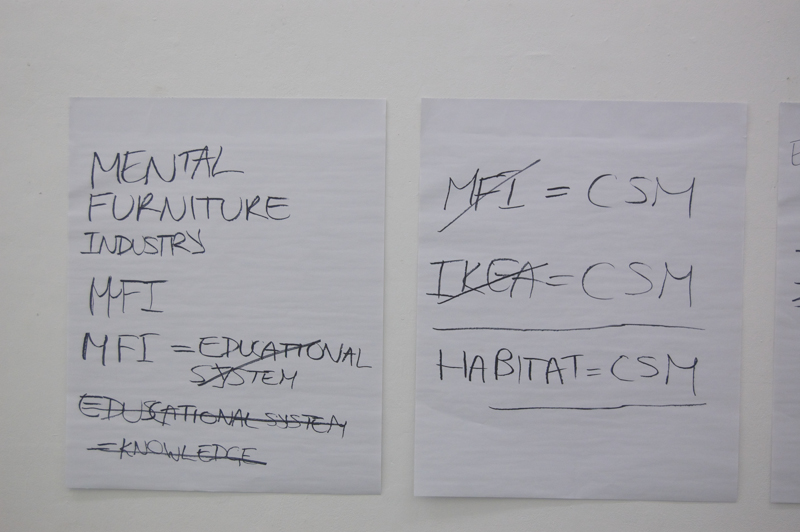 MENTAL
FURNITURE
INDUSTRY
MFI
MFI = EDUCATIONAL
SYSTEM
EDUCATIONAL SYSTEM
= KNOWLEDGE
MFI = CSM
IKEA = CSM
HABITAT = CSM